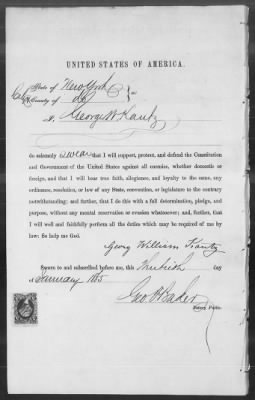 UNITED STATES OF AMERICA.
State of New York
City & County of do } ss
I, George W Kautz
do solemnly swear that I will support, protect, and defend the Constitution
and Government of the United States against all enemies, whether domestic or
foreign, and that I will bear true faith, allegiance, and loyalty to the same, any
ordinance, resolution, or law of any State, convention, or legislature to the contrary
notwithstanding; and further, that I do this with a full determination, pledge, and
purpose, without any mental reservation or evasion whatsoever; and, further, that
I will well and faithfully perform all the duties which may be required of me by
law. So help me God.
Georg William Kautz
Sworn to and subscribed before me, this Thirtieth day
of January 1865
Geo. Baker
Notary Public.